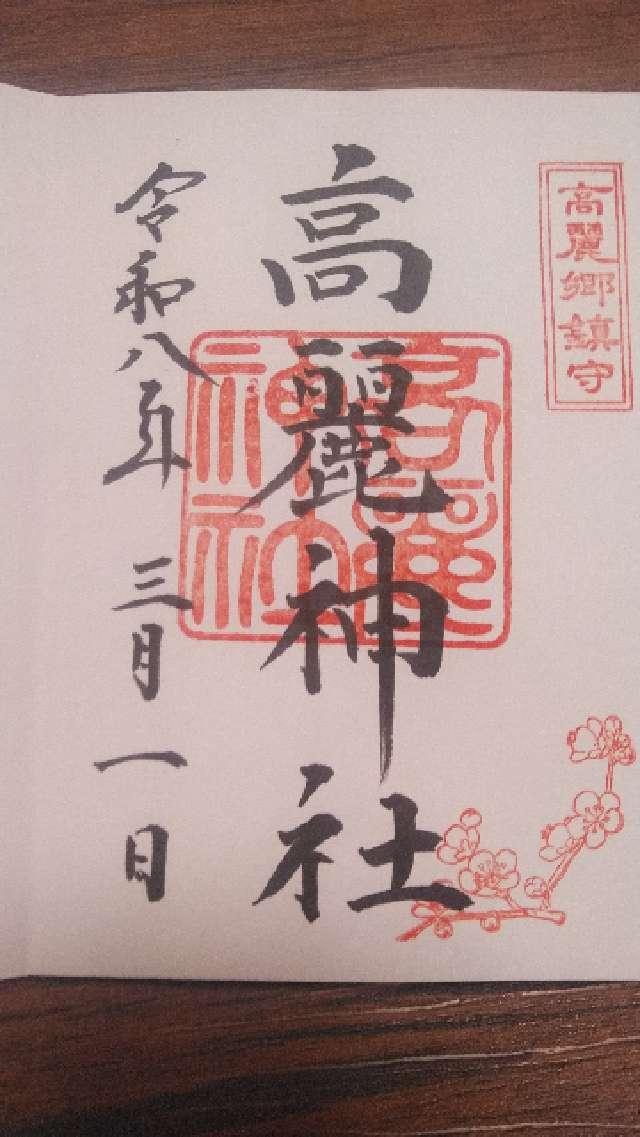 高麗郷鎮守
高麗神社
高麗神社
令和八年 三月 一日